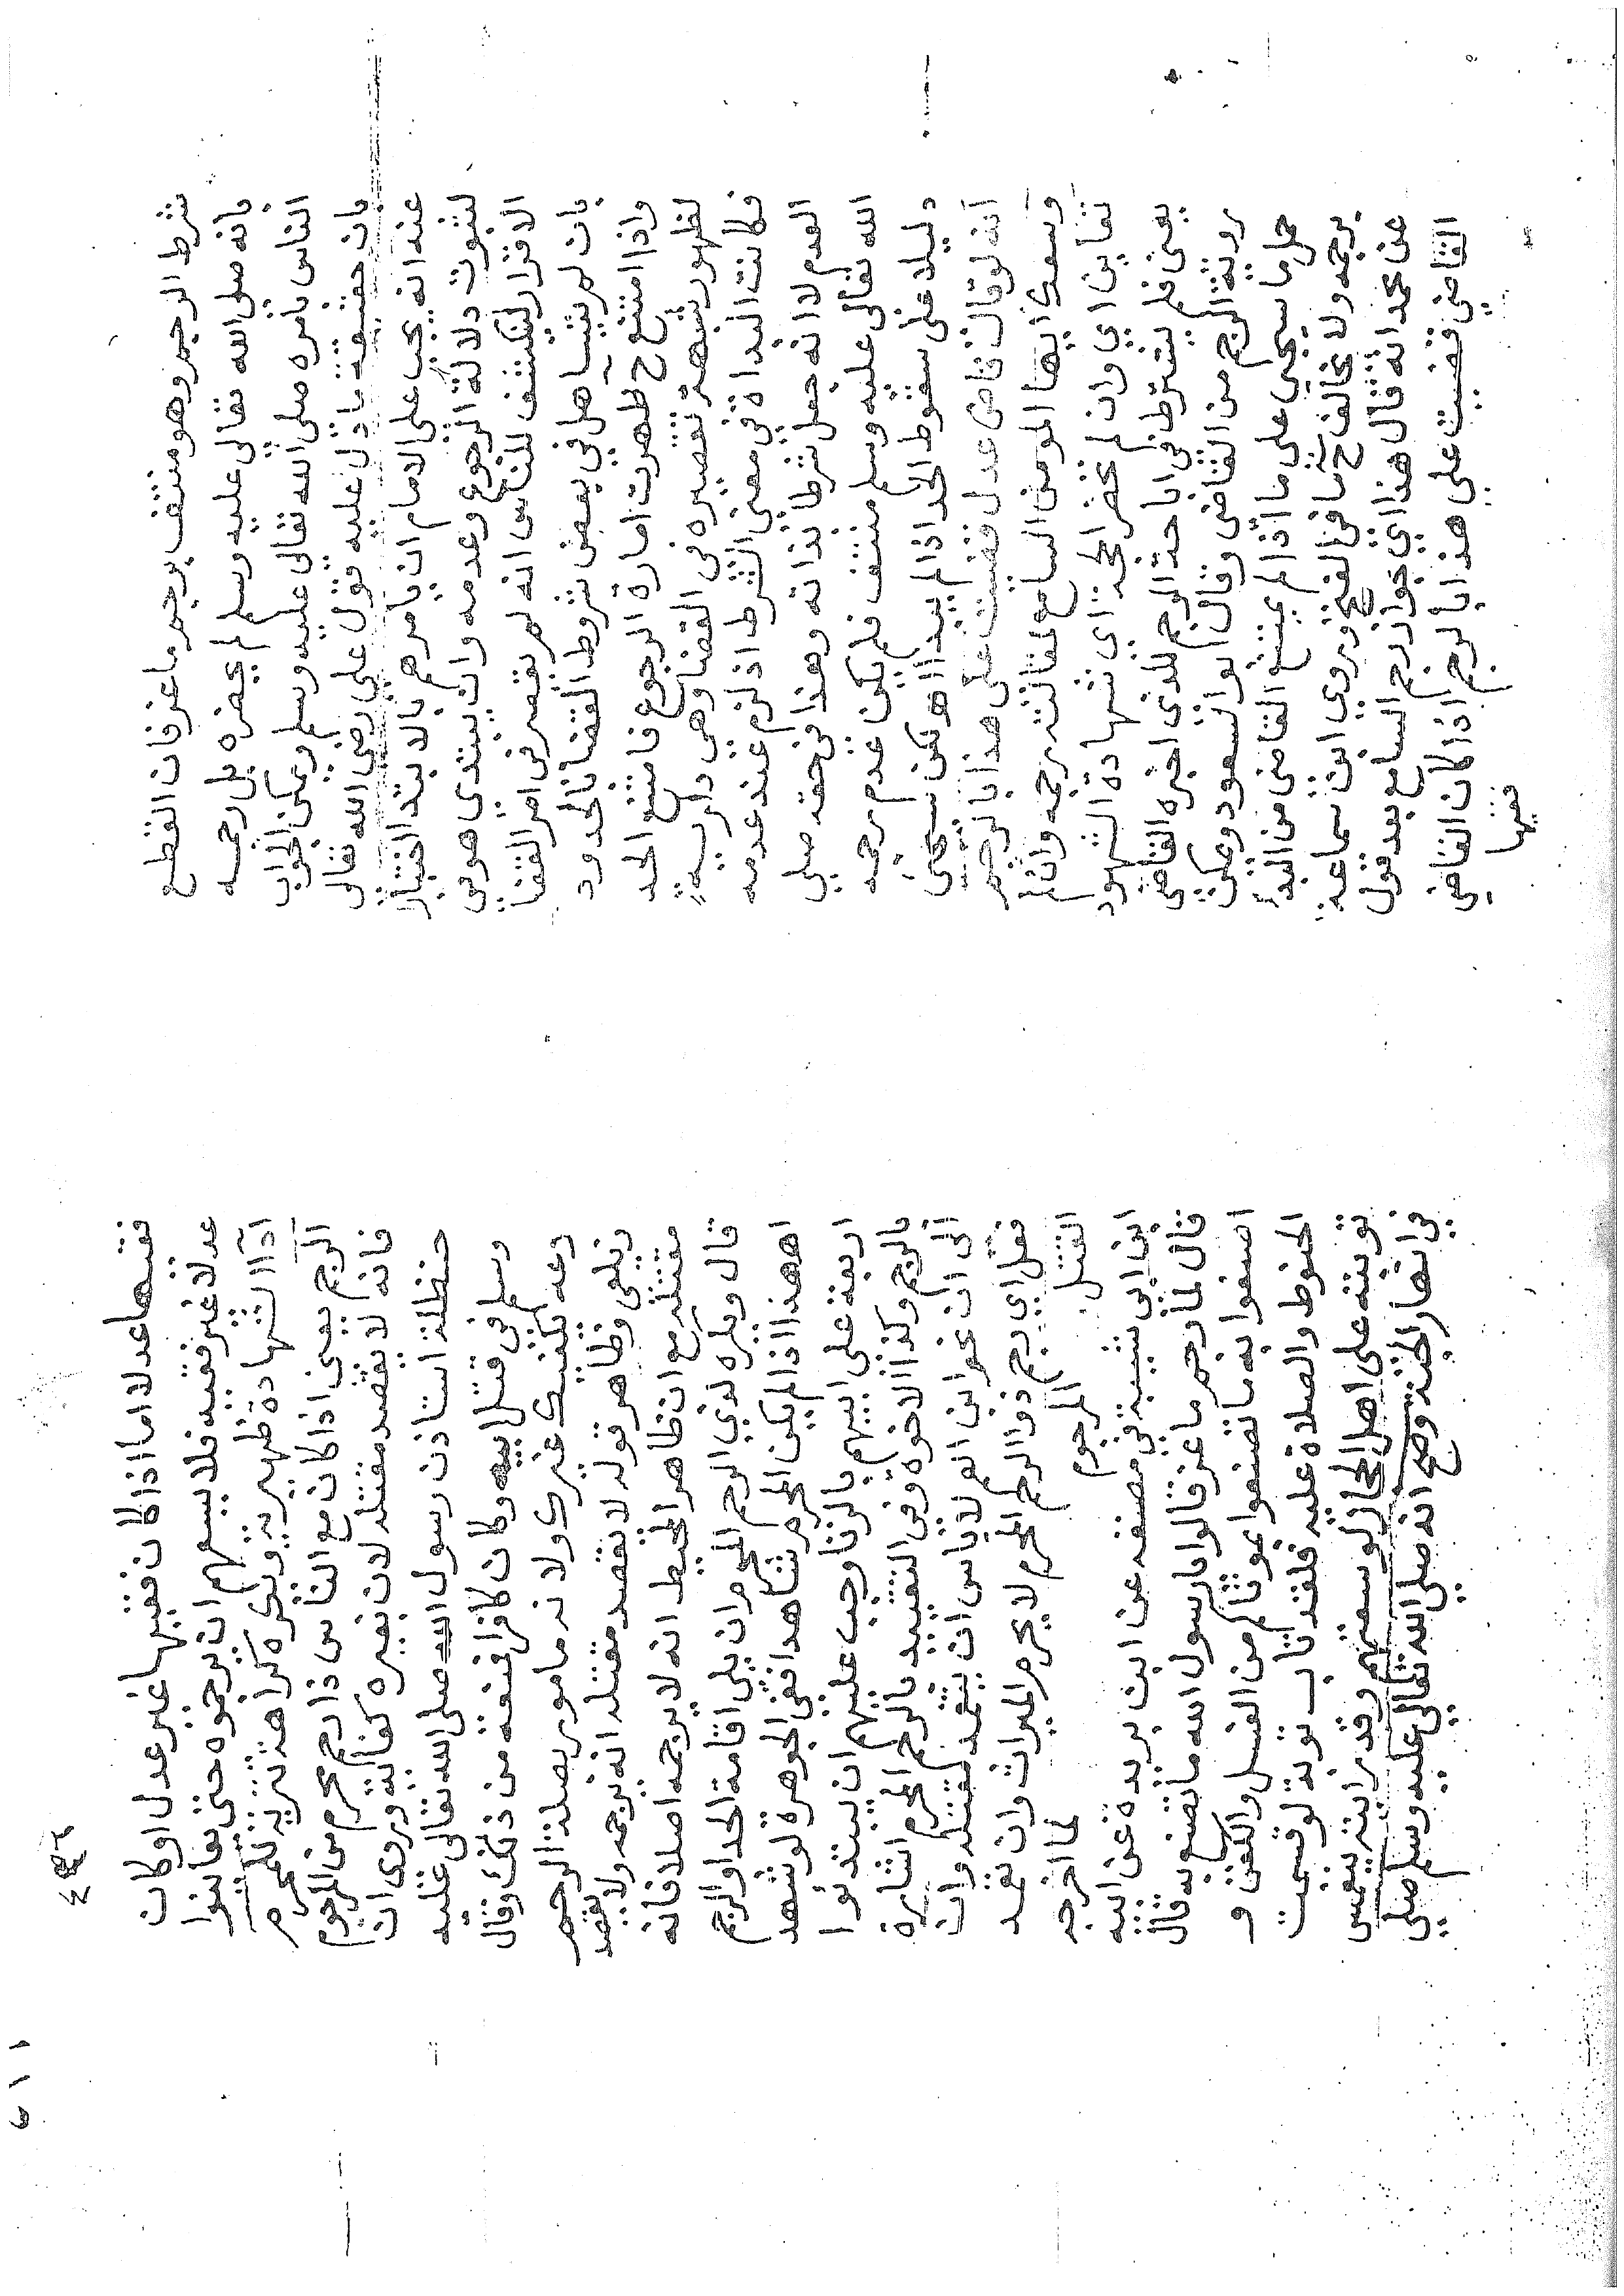 شرط الرجم وهو منتف برجم ماعز فان القطع
بانه صلى الله تعالى عليه وسلم لم يحضره بل رجمه
الناس بامره صلى الله تعالى عليه وسلم ويمكن الجواب
بان حقيقة ما دل عليه قول علي رضي الله تعالى
عنه انه يجب على الامام ان يامرهم بالابتداء اختبارا
لثبوت دلالة الرجوع وعدمه وان يبتدى هو في
الاقرار لينكشف للناس انه لم يقصر في امر القضا
بان لم يتساهل في بعض شروط القضا بالحدود
واذا امتنع ح ظهرت امارة الرجوع فامتنع الحد
لظهور شبهة تقصيره في القضا وهي دارية
فكانت البداة في معنى الشرط اذ لزم عنه عدمه
العدم لا انه جعل شرطا بذاته وهذا في حقه صلى
الله تعالى عليه وسلم منتف فلم يكن عدم رجمه
دليلا على سقوط الحد اذا لم يبدا اهـ لكن سيجئ
انه لو قال قاض عدل قضيت على هذا بالرجم
وسعك ايها المومن السامع لمقالته رجمه وان لم
تعاين اي وان لم تحضر الحجة اي شهادة الشهود
يعني فلم يشترط في اباحة الرجم للذى اخبره القاضى
روية الرجم من القاضى وقال ابو السعود ويمكن
حمل ما سيجئ على ما اذا لم يمتنع القاضى من البدأ
برجمه ولا يخالف ح ما في الفتح وروي ابن سماعة
عن محمد انه قال هذا اي جواز رجم السامع بعد قول
القاضي قضيت على هذا بالرجم اذا كان القاضي
فقيها
فقيها عدلا اما اذا كان فقيها غير عدل او كان
عدلا غير فقيه فلا يسعهم ان يرجموه حتى يعاينوا
اداا الشهادة ظهيرية ويكره كراهة تنزيه للمحرم
الرجم يعنى اذا كان مع الناس ذا رحم محرم من المرجوم
فانه لا يقصد مقتله لان بغيره كفاية وروى ان
حنظلة استاذن رسول الله صلى الله تعالى عليه
وسلم في قتل ابيه وكان كافرا فمنعه من ذلك وقال
دعه يكفيك غيرك ولانه مامور بصلة الرحم
زيلعى وظاهر قوله لا يقصد مقتله انه يرجمه ولا يقصد
مقتله مع ان ظاهر المحيط انه لا يرجمه اصلا فانه
قال ويكره لذي الرحم المحرم ان يلى اقامة الحد او الرجم
اهـ هذا اذا لم يكن المحرم شاهدا ففي الجوهرة لو شهد
اربعة على ابيهم بالزنا وجب عليهم ان يبتدئوا
بالرجم وكذا الاخوة وفي التقييد بالرحم المحرم اشارة
الى ان نحو ابن العم لا باس ان يتعمد لقتله وان
فعل اي رجم ذوا الرحم المحرم لا يحرم الميراث وان تعمد
القتل المرجوم لما اخرجه
ابن ابي شيبة في مصنفه عن ابن بريدة عن ابيه
قال لما رجم ماعز قالوا يا رسول الله ما نصنع به قال
اصنعوا به ما تصنعوا بموتاكم من الغسل والكفن و
الحنوط والصلاة عليه فلقد تاب توبة لو قسمت
توبته على اهل الحجاز لوسعتهم وقد رايته ينغمس
في انهار الجنة وصح انه صلى الله تعالى عليه وسلم صلى